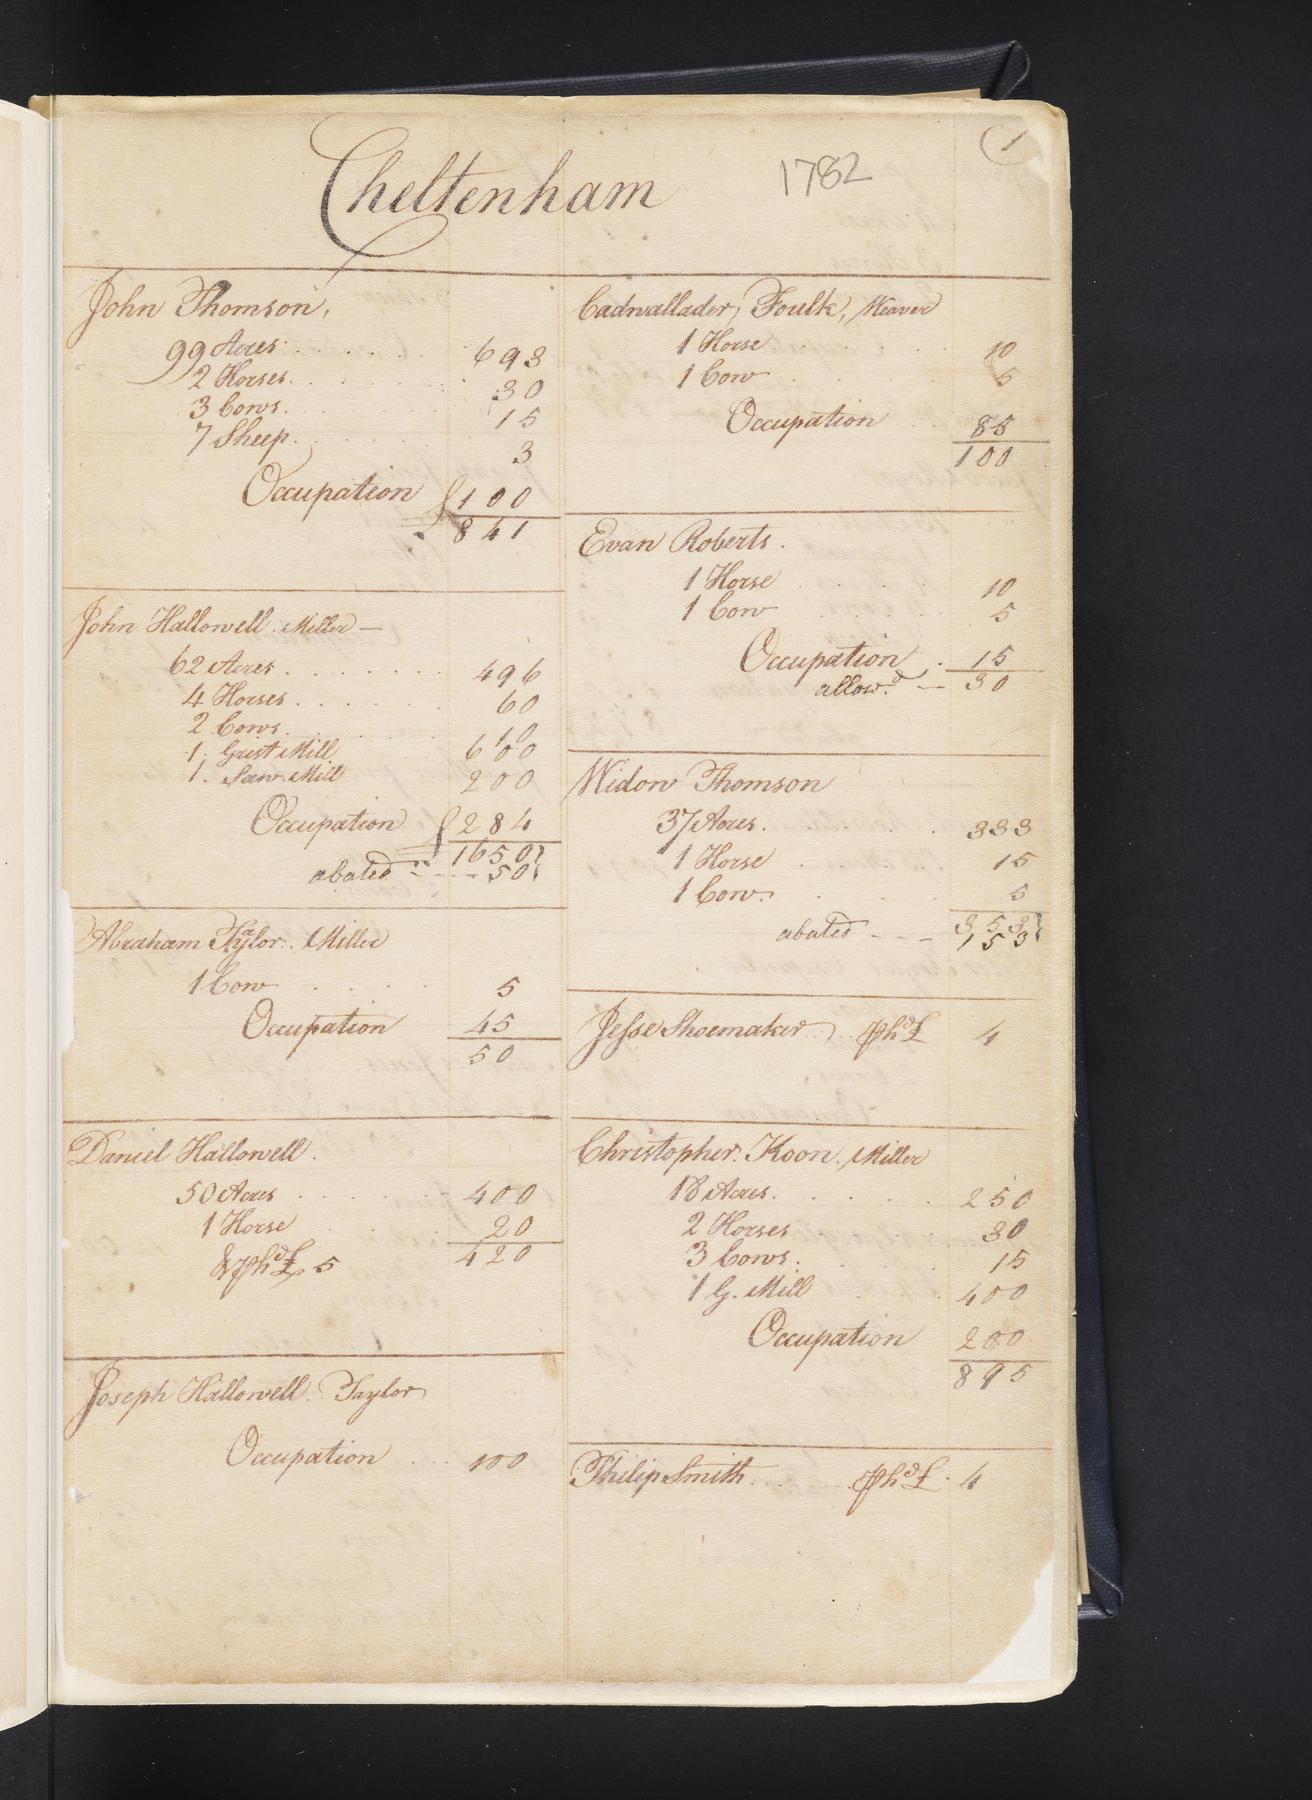 1
Cheltenham
1782
John Thomson,
99 Acres . . . . . . 693
2 Horses . . . . . 30
3 Cows . . . . . 15
7 Sheep . . . . . 3
Occupation 100
841
John Hallowell. Miller —
62 Acres . . . . . . 496
4 Horses . . . . . 60
2 Cows . . . . . 10
1. Grist Mill 600
1. Saw. Mill 200
Occupation 284
1650
abated - - - 50
Abraham Taylor. Miller
1 Cow . . . . 5
Occupation 45
50
Daniel Hallowell.
50 Acres . . . . 400
1 Horse . . . . 20
420
& Ph.d £ 5
Joseph Hallowell. Taylor
Occupation . . . 100
Cadwallader, Foulk, Weaver
1 Horse . . . . 10
1 Cow . . . . 5
Occupation . . 85
100
Evan Roberts.
1 Horse . . . . 10
1 Cow . . . . 5
Occupation . 15
allow.d — 30
Widow Thomson
37 Acres . . . . 333
1 Horse . . . . 15
1 Cow . . . . 5
353
abated - - - 153
Jesse Shoemaker Ph.d £ 4
Christopher. Koon. Miller
18 Acres . . . . . 250
2 Horses . . . . 30
3 Cows . . . . 15
1 G. Mill . . . 400
Occupation 200
895
Philip Smith . . . Ph.d £ . 4